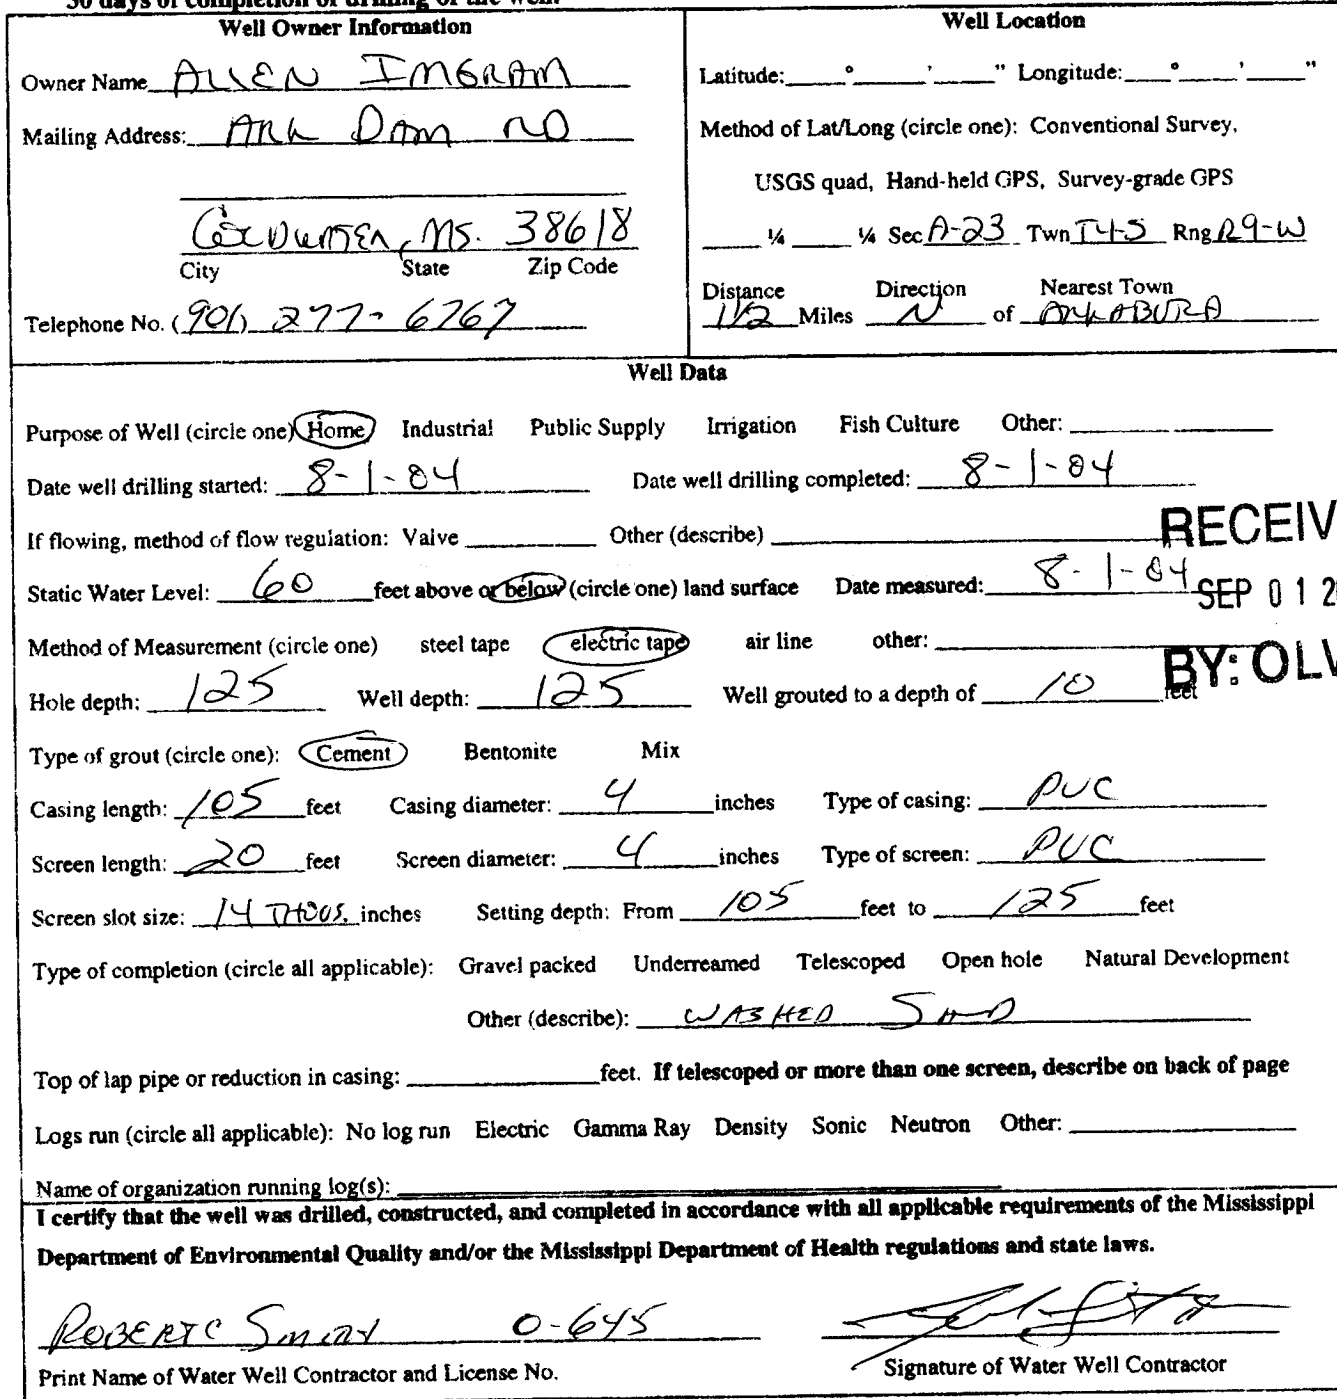 30 days of completion of drilling of the well.
Well Owner Information
Owner Name ALLEN INGRAM
Mailing Address: ARK DAM RD
COLDWATER, MS. 38618
City State Zip Code
Telephone No. (901) 277-6767
Well Location
Latitude: ° ' " Longitude: ° ' "
Method of Lat/Long (circle one): Conventional Survey,
USGS quad, Hand-held GPS, Survey-grade GPS
¼ ¼ Sec A-23 Twn T4-S Rng R9-W
Distance Direction Nearest Town
1 1/2 Miles N of ARKABUTLA
Well Data
Purpose of Well (circle one) Home Industrial Public Supply Irrigation Fish Culture Other:
Date well drilling started: 8-1-04 Date well drilling completed: 8-1-04
If flowing, method of flow regulation: Valve Other (describe)
RECEIV
Static Water Level: 60 feet above or below (circle one) land surface Date measured: 8-1-04
SEP 01 2
Method of Measurement (circle one) steel tape electric tape air line other:
BY: OLW
Hole depth: 125 Well depth: 125 Well grouted to a depth of 10 feet
Type of grout (circle one): Cement Bentonite Mix
Casing length: 105 feet Casing diameter: 4 inches Type of casing: PVC
Screen length: 20 feet Screen diameter: 4 inches Type of screen: PVC
Screen slot size: 14 THOUS. inches Setting depth: From 105 feet to 125 feet
Type of completion (circle all applicable): Gravel packed Underreamed Telescoped Open hole Natural Development
Other (describe): WASHED SAND
Top of lap pipe or reduction in casing: feet. If telescoped or more than one screen, describe on back of page
Logs run (circle all applicable): No log run Electric Gamma Ray Density Sonic Neutron Other:
Name of organization running log(s):
I certify that the well was drilled, constructed, and completed in accordance with all applicable requirements of the Mississippi
Department of Environmental Quality and/or the Mississippi Department of Health regulations and state laws.
ROBERT C 0-645
Print Name of Water Well Contractor and License No.
Signature of Water Well Contractor